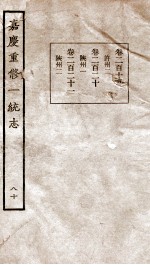 嘉慶重修一統志
八十
卷二百十九
許州
卷二百二十
陝州一
卷二百二十一
陝州二